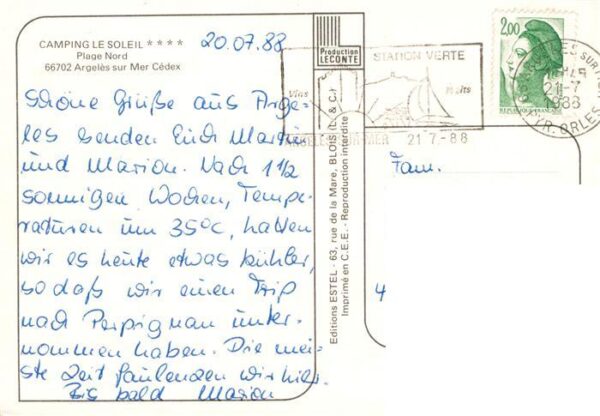 CAMPING LE SOLEIL ****
Plage Nord
66702 Argelès sur Mer Cédex
20.07.88
Schöne Grüße aus Arge-
les senden Euch Martin
und Marion. Nach 1 1/2
sonnigen Wochen, Tempe-
raturen um 35°C, hatten
wir es heute etwas kühler,
so daß wir einen Trip
nach Perpignan unter-
nommen haben. Die mei-
ste Zeit faulenzen wir hier.
Bis bald Marion
Production
LECONTE
Editions ESTEL - 63, rue de la Mare, BLOIS (L. & C.)
Imprimé en C.E.E. - Reproduction interdite
STATION VERTE
Vins
21-7-88
2,00
21-7
1988
PYR. ORLES
Fam.
4